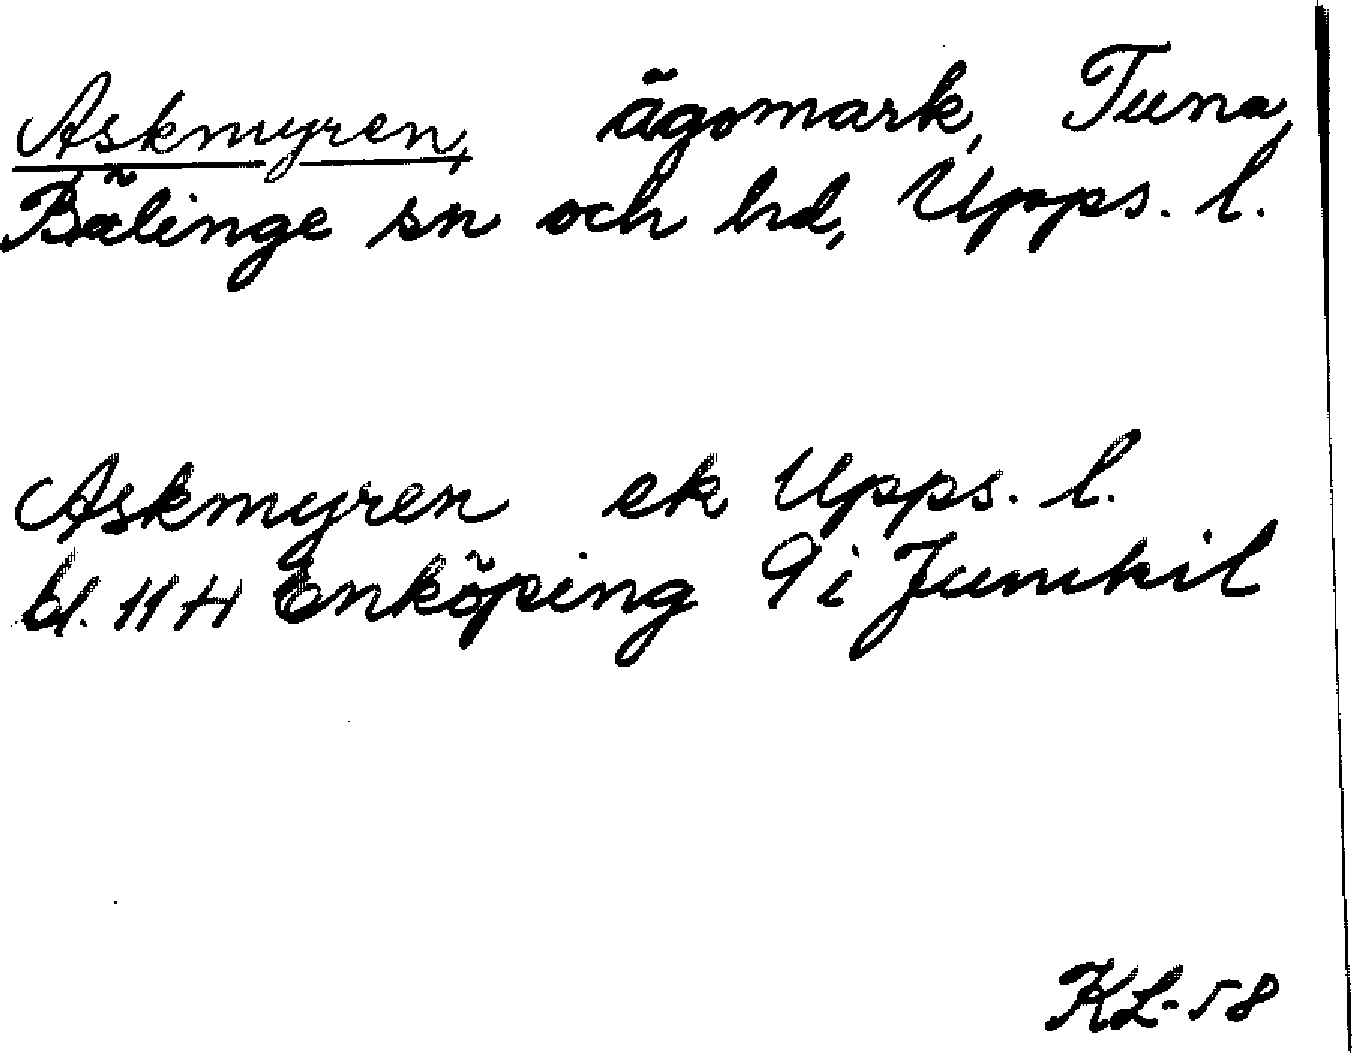 Askmyren, ägomark, Tuna,
Bälinge sn och hd, Upps. l.
Askmyren ek Upps. l.
bl. 11 H Enköping 9 i Jumkil
KL-58